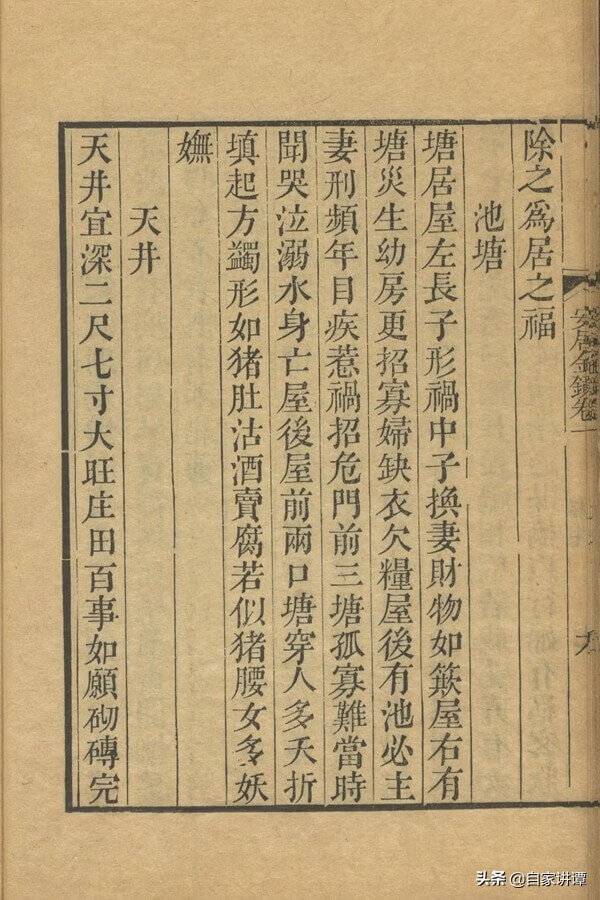 安居金鏡卷一
九
除之爲居之福
池塘
塘居屋左長子形禍中子換妻財物如屋右有
塘災生幼房更招寡婦缺衣欠糧屋後有池必主
妻刑頻年目疾惹禍招危門前三塘孤寡難當時
聞哭泣溺水身亡屋後屋前兩口塘穿人多夭折
填起方蠲形如猪肚沽酒賣腐若似猪腰女多妖
嫵
天井
天井宜深二尺七寸大旺庄田百事如願砌磚完
头条 @自家讲谭